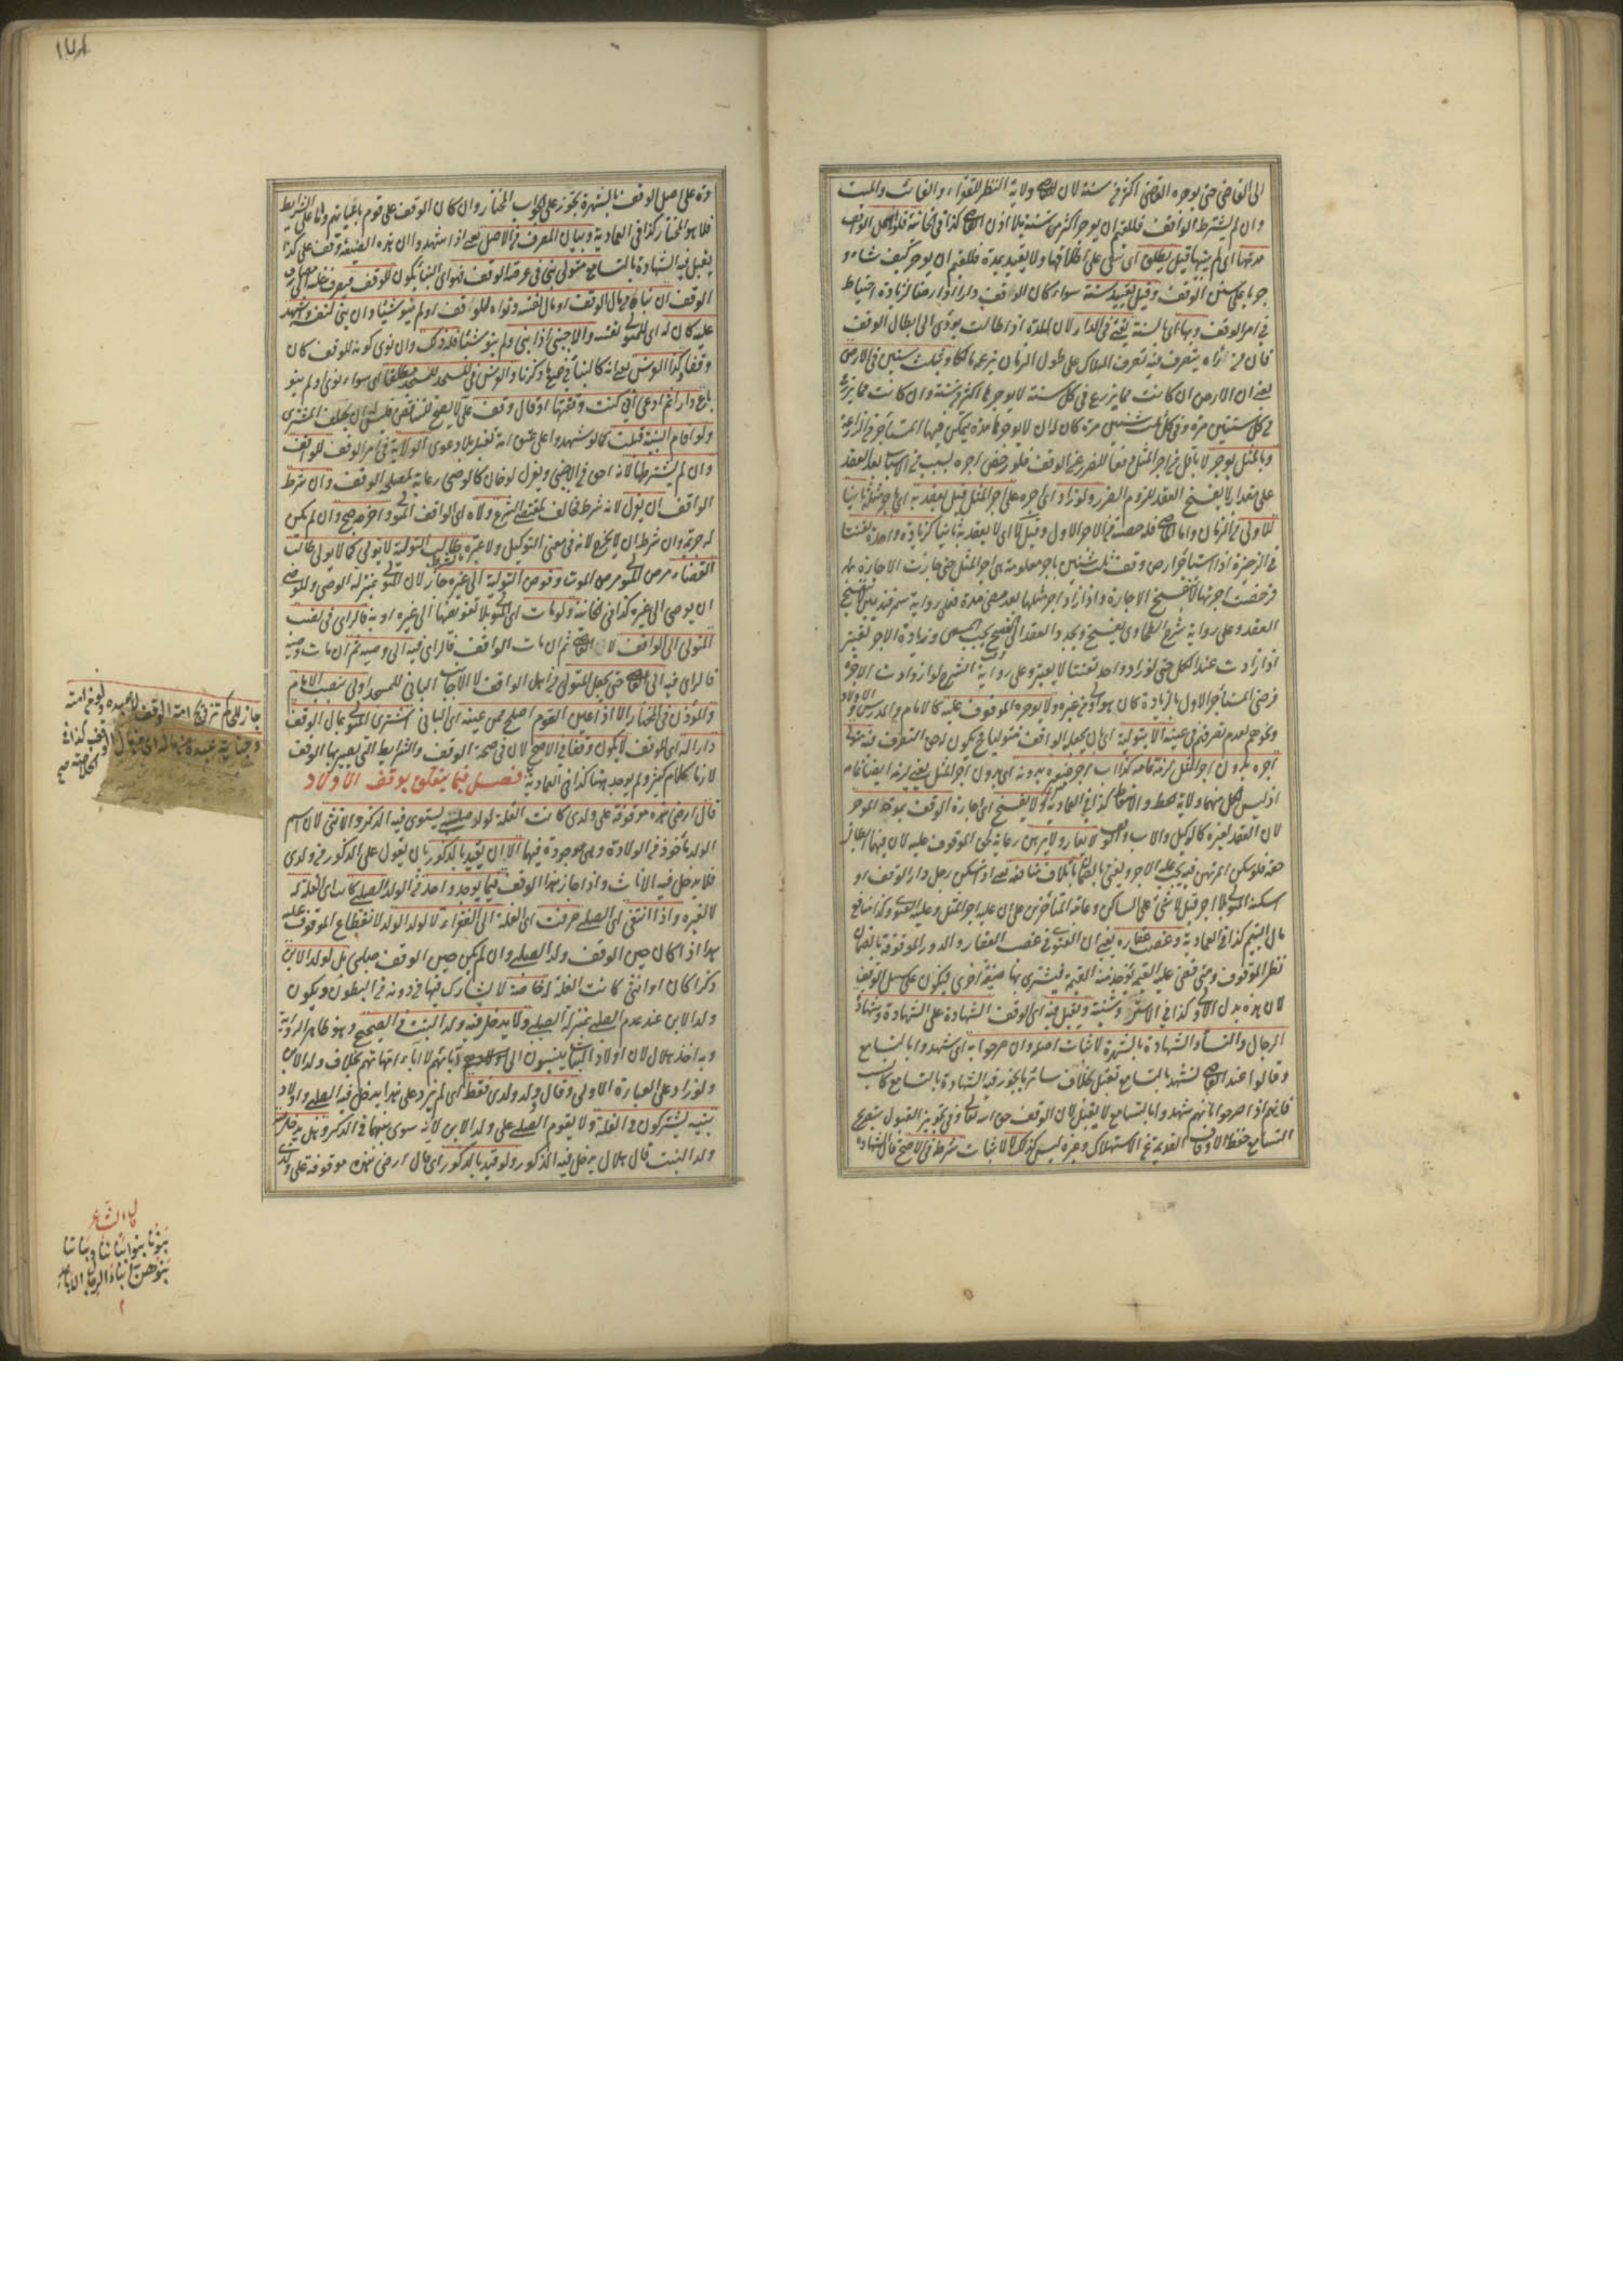 الى القاضى حتى يوجره القاضى اكثر من سنة لان للقاضى ولاية النظر للفقراء والغائب والميت
وان لم يشترط الواقف فللقيم ان يوجر اكثر من سنة بلا اذن القاضى كذا فى الخانية فلو اهمل الواقف
مدتها اى لم يبينها قيل يطلق اى تبقى على اطلاقها ولا يقيد بمدة فللقيم ان يوجر كيف شاء و
جريا على سنن الوقف وقيل تقيد بسنة سواء كان الوقف دارا او ارضا لزيادة احتياط
فى امر الوقف وبها اى بالسنة يفتى فى الدار لان المدة اذا طالت يؤدى الى ابطال الوقف
فان من رآه يتصرف فيه تصرف الملاك على طول الزمان يزعمه مالكا وبثلث سنين فى الارض
يعنى ان الارض ان كانت مما يزرع فى كل سنة لا يوجرها اكثر من سنة وان كانت مما يزرع
فى كل سنتين مرة وفى كل ثلث سنين مرة كان له ان لا يوجرها مدة يتمكن فيها المستأجر من الزراعة
وبالمثل يوجر لا باقل من اجر المثل دفعا للضرر عن الوقف فلو رخص اجره بسبب من الاسباب بعد العقد
على مقدار لا يفسخ العقد للزوم الضرر ولو زاد اى اجره على اجر المثل قيل يعقد به اى باجر مثله ثانيا
للاولى من الزمان واما الماضى فله حصته من الاجر الاول وقيل لا اى لا يعقد به ثانيا كزيادة واحد تعنتا
فى الذخيرة اذا استأجر ارض وقف ثلث سنين باجر معلومة هى اجر المثل حتى جازت الاجارة ثم
فرخصت اجرتها لا تنفسخ الاجارة واذا زاد اجر مثلها بعد مضى مدة فعلى رواية سمرقنديين لا يفسخ
العقد وعلى رواية شرح الطحاوى يفسخ ويجدد العقد الى الفسخ يجب المسمى وزيادة الاجر تعتبر
اذا زادت عند الكل حتى لو زاد واحد تعنتا لا يعتبر وعلى رواية الشرح لو ازدادت الاجرة
فرضى المستأجر الاول بالزيادة كان هو اولى من غيره ولا يوجره الموقوف عليه كالامام والمدرس والاولاد
ونحوهم لعدم تصرفهم فى عينه الا بتولية اى بان يجعله الواقف متوليا فح يكون له حق التصرف فيه متولى
اجره بدون اجر المثل لزمه تمامه كذا اب اجر صغيره بدونه اى بدون اجر المثل يعنى لزمه ايضا تمامه
اذ ليس لكل منهما ولاية الحط والاسقاط كذا فى العمادية ولا يفسخ اى اجارة الوقف بموت الموجر
لان العقد لغيره كالوكيل والاب والوصى لا يعار ولا يرهن رعاية لحق الموقوف عليه لان فيهما ابطال
حقه فلو سكن المرتهن فيه يجب عليه الاجر ويفتى بالضمان باتلاف منافعه يعنى اذا سكن رجل دار الوقف او
اسكنه المتولى بلا اجر قيل لا شئ على الساكن وعامة المتأخرين على ان عليه اجر المثل وعليه الفتوى وكذا منافع
مال اليتيم كذا فى العمادية وغصب عقاره يعنى ان الفتوى فى غصب العقار والدور الموقوفة بالضمان
نظر للوقف ومتى قضى عليه بالقيمة تؤخذ منه القيمة فيشترى بها ضيعة اخرى فيكون على سبيل الوقف
لان هذه بدل الاولى كذا فى الاستروشنية ويقبل فيه اى الوقف الشهادة على الشهادة وشهادة
الرجال والنساء والشهادة بالشهرة لاثبات اصله وان صرحوا به اى شهدوا بالتسامع
وقالوا عند القاضى نشهد بالتسامع تقبل بخلاف سائر ما يجوز فيه الشهادة بالتسامع كالنسب
فانهم اذا صرحوا بانهم شهدوا بالتسامع لا يقبل لان الوقف حق الله تعالى وفى تجويز القبول بتصريح
التسامع حفظ الاوقاف القديمة عن الاستهلاك وغيره ليس كذلك لا لاثبات شرطه فى الاصح قال الشهادة
١٧٨
دة على اصل الوقف بالشهرة تجوز على الجواب المختار وان كان الوقف على قوم باعيانهم واما على الشرايط
فلا هو المختار كذا فى العمادية وبيان المصرف من الاصل يعنى اذا شهدوا ان هذه الضيعة وقف على كذا
يقبل فيه الشهادة بالتسامع متولى بنى فى عرصة الوقف فهو اى البناء يكون للوقف فيصرف غلته الى مصارف
الوقف ان بناه من مال الوقف او مال نفسه ونواه للوقف او لم ينو شيئا وان بنى لنفسه واشهد
عليه كان له اى للمتولى نفسه والاجنبى اذا بنى ولم ينو شيئا فله ذلك وان نوى كونه للوقف كان
وقفا وكذا الغرس يعنى انه كالبناء فى جميع ما ذكرنا والغرس فى المسجد للمسجد مطلقا اى سواء نوى او لم ينو
باع دارا ثم ادعى انى كنت وقفتها او قال وقف على لا يصح للتناقض فليس له ان يحلف المشترى
ولو اقام البينة قبلت كما لو شهدوا على عتق امة تقبل بلا دعوى الولاية فى امر الوقف للواقف
وان لم يشترطها لانه احق من الاجنبى ويعزل لو خان كالوصى رعاية لمصلحة الوقف وان شرط
الواقف ان لا يعزل لانه شرط مخالف لمقتضى الشرع ولاه اى الواقف المتولى واخرجه صح وان لم يكن
له جرمة وان شرط ان لا يخرج لانه فى معنى التوكيل ولا عبرة طالب التولية لا يولى كما لا يولى طالب
القضاء مرض المتولى مرض الموت وفوض التولية الى غيره جاز لان المتولى بمنزلة الوصى وللوصى
ان يوصى الى غيره كذا فى الخانية ولو مات اى المتولى بلا تفويضها الى غيره او به فالراى فى نصب
المتولى الى الواقف لا القاضى ثم ان مات الواقف فالراى فيه الى وصيه ثم ان مات وصيه
فالراى فيه الى القاضى حتى يجعل المتولى من اهل الواقف لا الاجانب البانى للمسجد اولى بنصب الامام
والمؤذن فى المختار الا اذا عين القوم اصلح ممن عينه اى البانى اشترى المتولى بمال الوقف
دارا له اى للوقف لا يكون وقفا فى الاصح لان فى صحة الوقف والشرايط التى يصير بها الوقف
لازما كلام كثير ولم يوجد ههنا كذا فى العمادية فصل فيما يتعلق بوقف الاولاد
قال ارضى هذه موقوفة على ولدى كانت الغلة لولد صلبه يستوى فيه الذكر والانثى لان اسم
الولد مأخوذ من الولادة وهى موجودة فيهما الا ان يقيد بالذكور بان يقول على الذكور من ولدى
فلا يدخل فيه الاناث واذا جاز هذا الوقف فما يوجد واحد من الولد الصلبى كانت اى الغلة له
لا لغيره واذا انتفى اى الصلبى صرفت اى الغلة الى الفقراء لا لولد الولد لانقطاع الموقوف عليه
هذا اذا كان حين الوقف ولد الصلبى وان لم يكن حين الوقف صلبى بل لولد الابن
ذكرا كان او انثى كانت الغلة له خاصة لا يشارك فيها من دونه من البطون ويكون
ولد الابن عند عدم الصلبى بمنزلة الصلبى ولا يدخل فيه ولد البنت فى الصحيح وهو ظاهر الرواية
وبه اخذ هلال لان اولاد البنات ينسبون الى آبائهم لا آباء امهاتهم بخلاف ولد الابن
ولو زاد على العبارة الاولى وقال وولد ولدى فقط اى لم يزد على هذا يدخل فيه الصلبى واولاد
بنيه يشتركون فى الغلة ولا يقدم الصلبى على ولد الابن لانه سوى بينهما فى الذكر وهل يدخل فيه
ولد البنت قال هلال يدخل فيه الذكور ولو قيد بالذكور اى قال ارضى هذه موقوفة على ولدى
جاز للحاكم تزويج امة الوقف لا عبده ولو من امته
وجناية عبده من ماله اى من مال الوقف كذا فى
الخلاصة
قال الشاعر
بنونا بنوا ابنائنا وبناتنا
بنوهن ابناء الرجال الاباعد